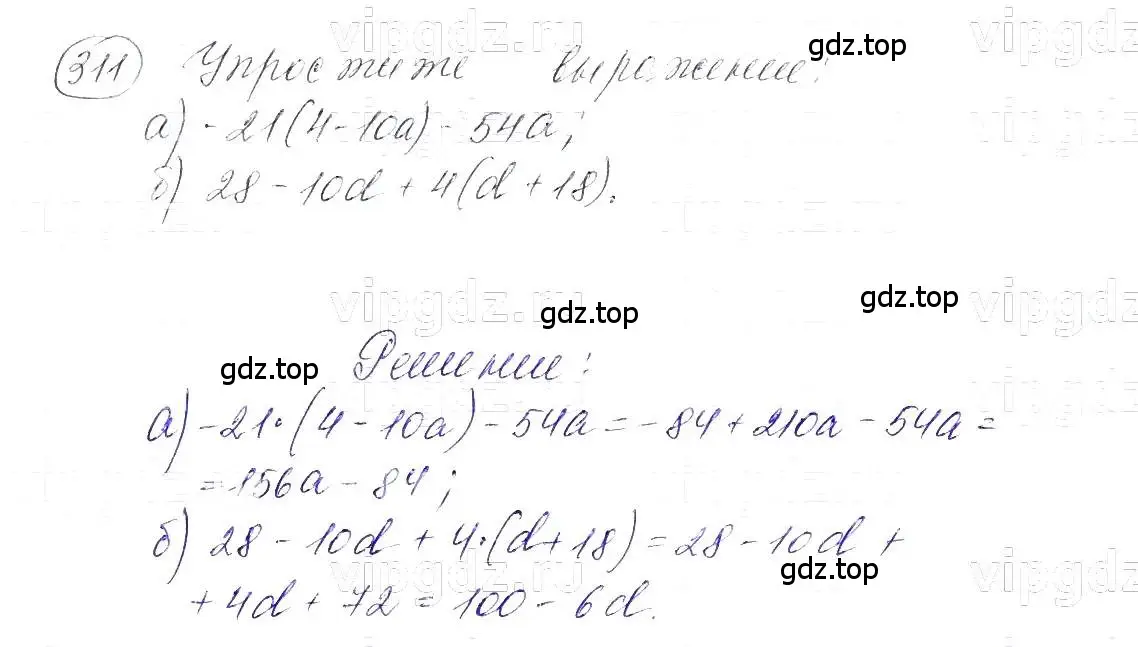 311 Упростите выражение:
а) -21(4-10a)-54a;
б) 28-10d+4(d+18).
Решение:
а) -21·(4-10a)-54a=-84+210a-54a=
=156a-84;
б) 28-10d+4·(d+18)=28-10d+
+4d+72=100-6d.
vipgdz.ru
vipgdz
gdz.top
gdz.top
vipgdz.ru
vipgdz
gdz.top
gdz.top
vipgdz.ru
vipgdz
gdz.top